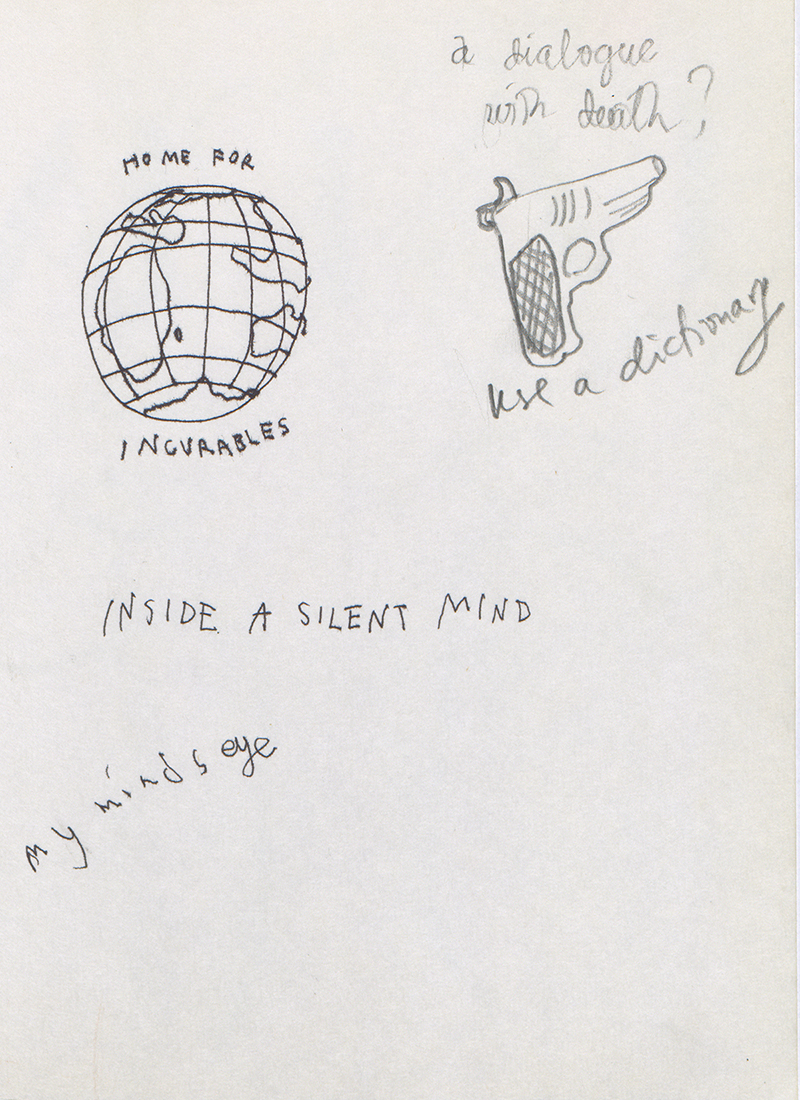 a dialogue
with death?
HOME FOR
INCURABLES
use a dictionary
INSIDE A SILENT MIND
my minds eye